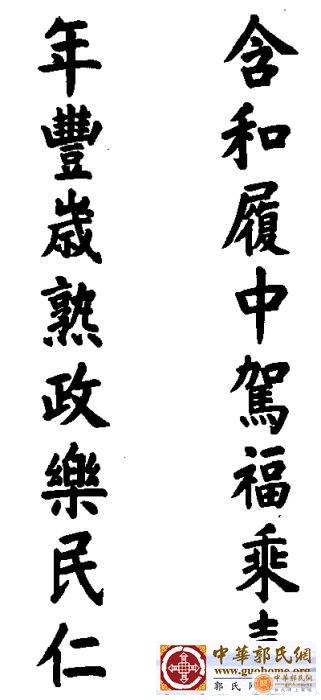 含和履中駕福乘
年豐歳熟政樂民仁
中華郭氏網
www.guohome.org
郭氏
中華郭氏網